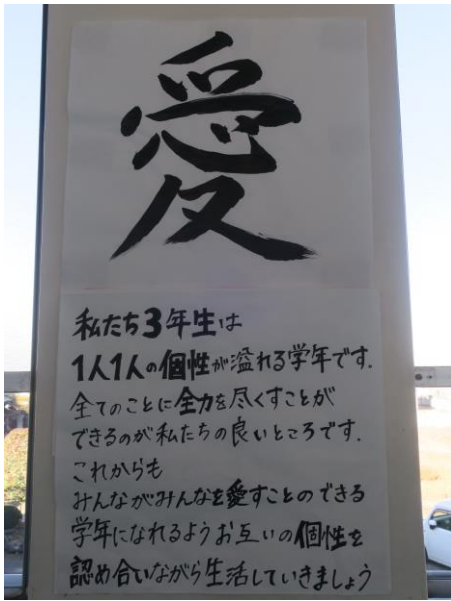 愛
私たち3年生は
1人1人の個性が溢れる学年です.
全てのことに全力を尽くすことが
できるのが私たちの良いところです.
これからも
みんながみんなを愛すことのできる
学年になれるようお互いの個性を
認め合いながら生活していきましょう